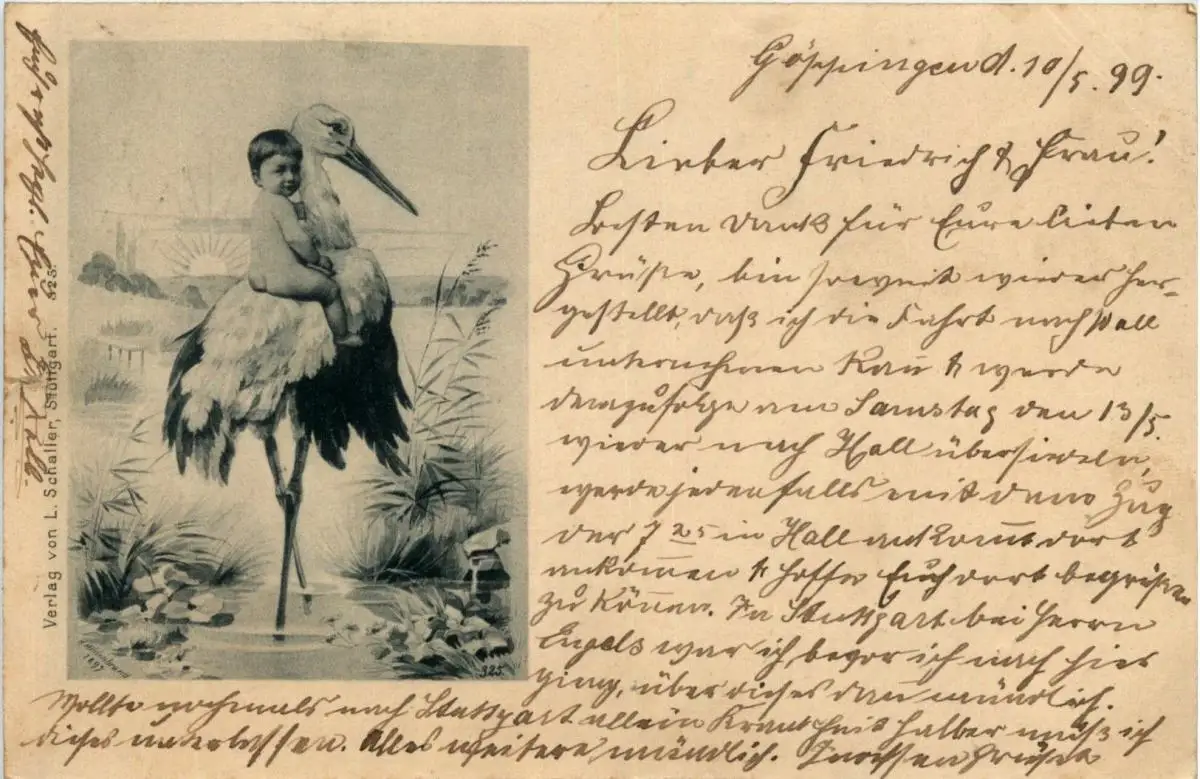 Göppingen d. 10/5. 99.
Lieber Friedrich & Frau!
Besten Dank für Eure lieben
Grüße, bin soweit wieder her-
gestellt, daß ich die Fahrt nach Hall
unternehmen kan̄ & werde
demzufolge am Samstag den 13/5.
wieder nach Hall übersiedeln,
werde jedenfalls mit dem Zug
der 7 25 in Hall ankom̄t dort
ankom̄en & hoffe Euch dort begrüßen
zu kön̄en. In Stuttgart bei Herrn
Engels war ich, bevor ich nach hier
ging, über dieses dan̄ mündlich.
Wollte nochmals nach Stuttgart allein Krankheits halber muß ich
dieses unterlassen. Alles weitere mündlich. Indessen grüßt
Verlag von L. Schaller, Stuttgart. 325.
1897
325.